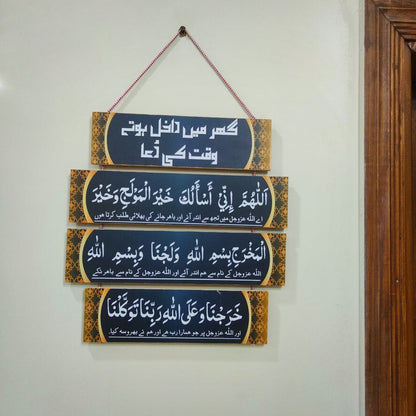 گھر میں داخل ہوتے
وقت کی دُعا
اَللّٰهُمَّ اِنِّيْ أَسْأَلُكَ خَيْرَ الْمَوْلَجِ وَخَيْرَ
اے اللہ عزوجل میں تجھ سے اندر آنے اور باہر جانے کی بھلائی طلب کرتا ہوں
الْمَخْرَجِ بِسْمِ اللهِ وَلَجْنَا وَبِسْمِ اللهِ
اللہ عزوجل کے نام سے ہم اندر آئے اور اللہ عزوجل کے نام سے باہر نکلے
خَرَجْنَا وَعَلَى اللهِ رَبِّنَا تَوَكَّلْنَا
اور اللہ عزوجل پر جو ہمارا رب ہے اور ہم نے بھروسہ کیا۔